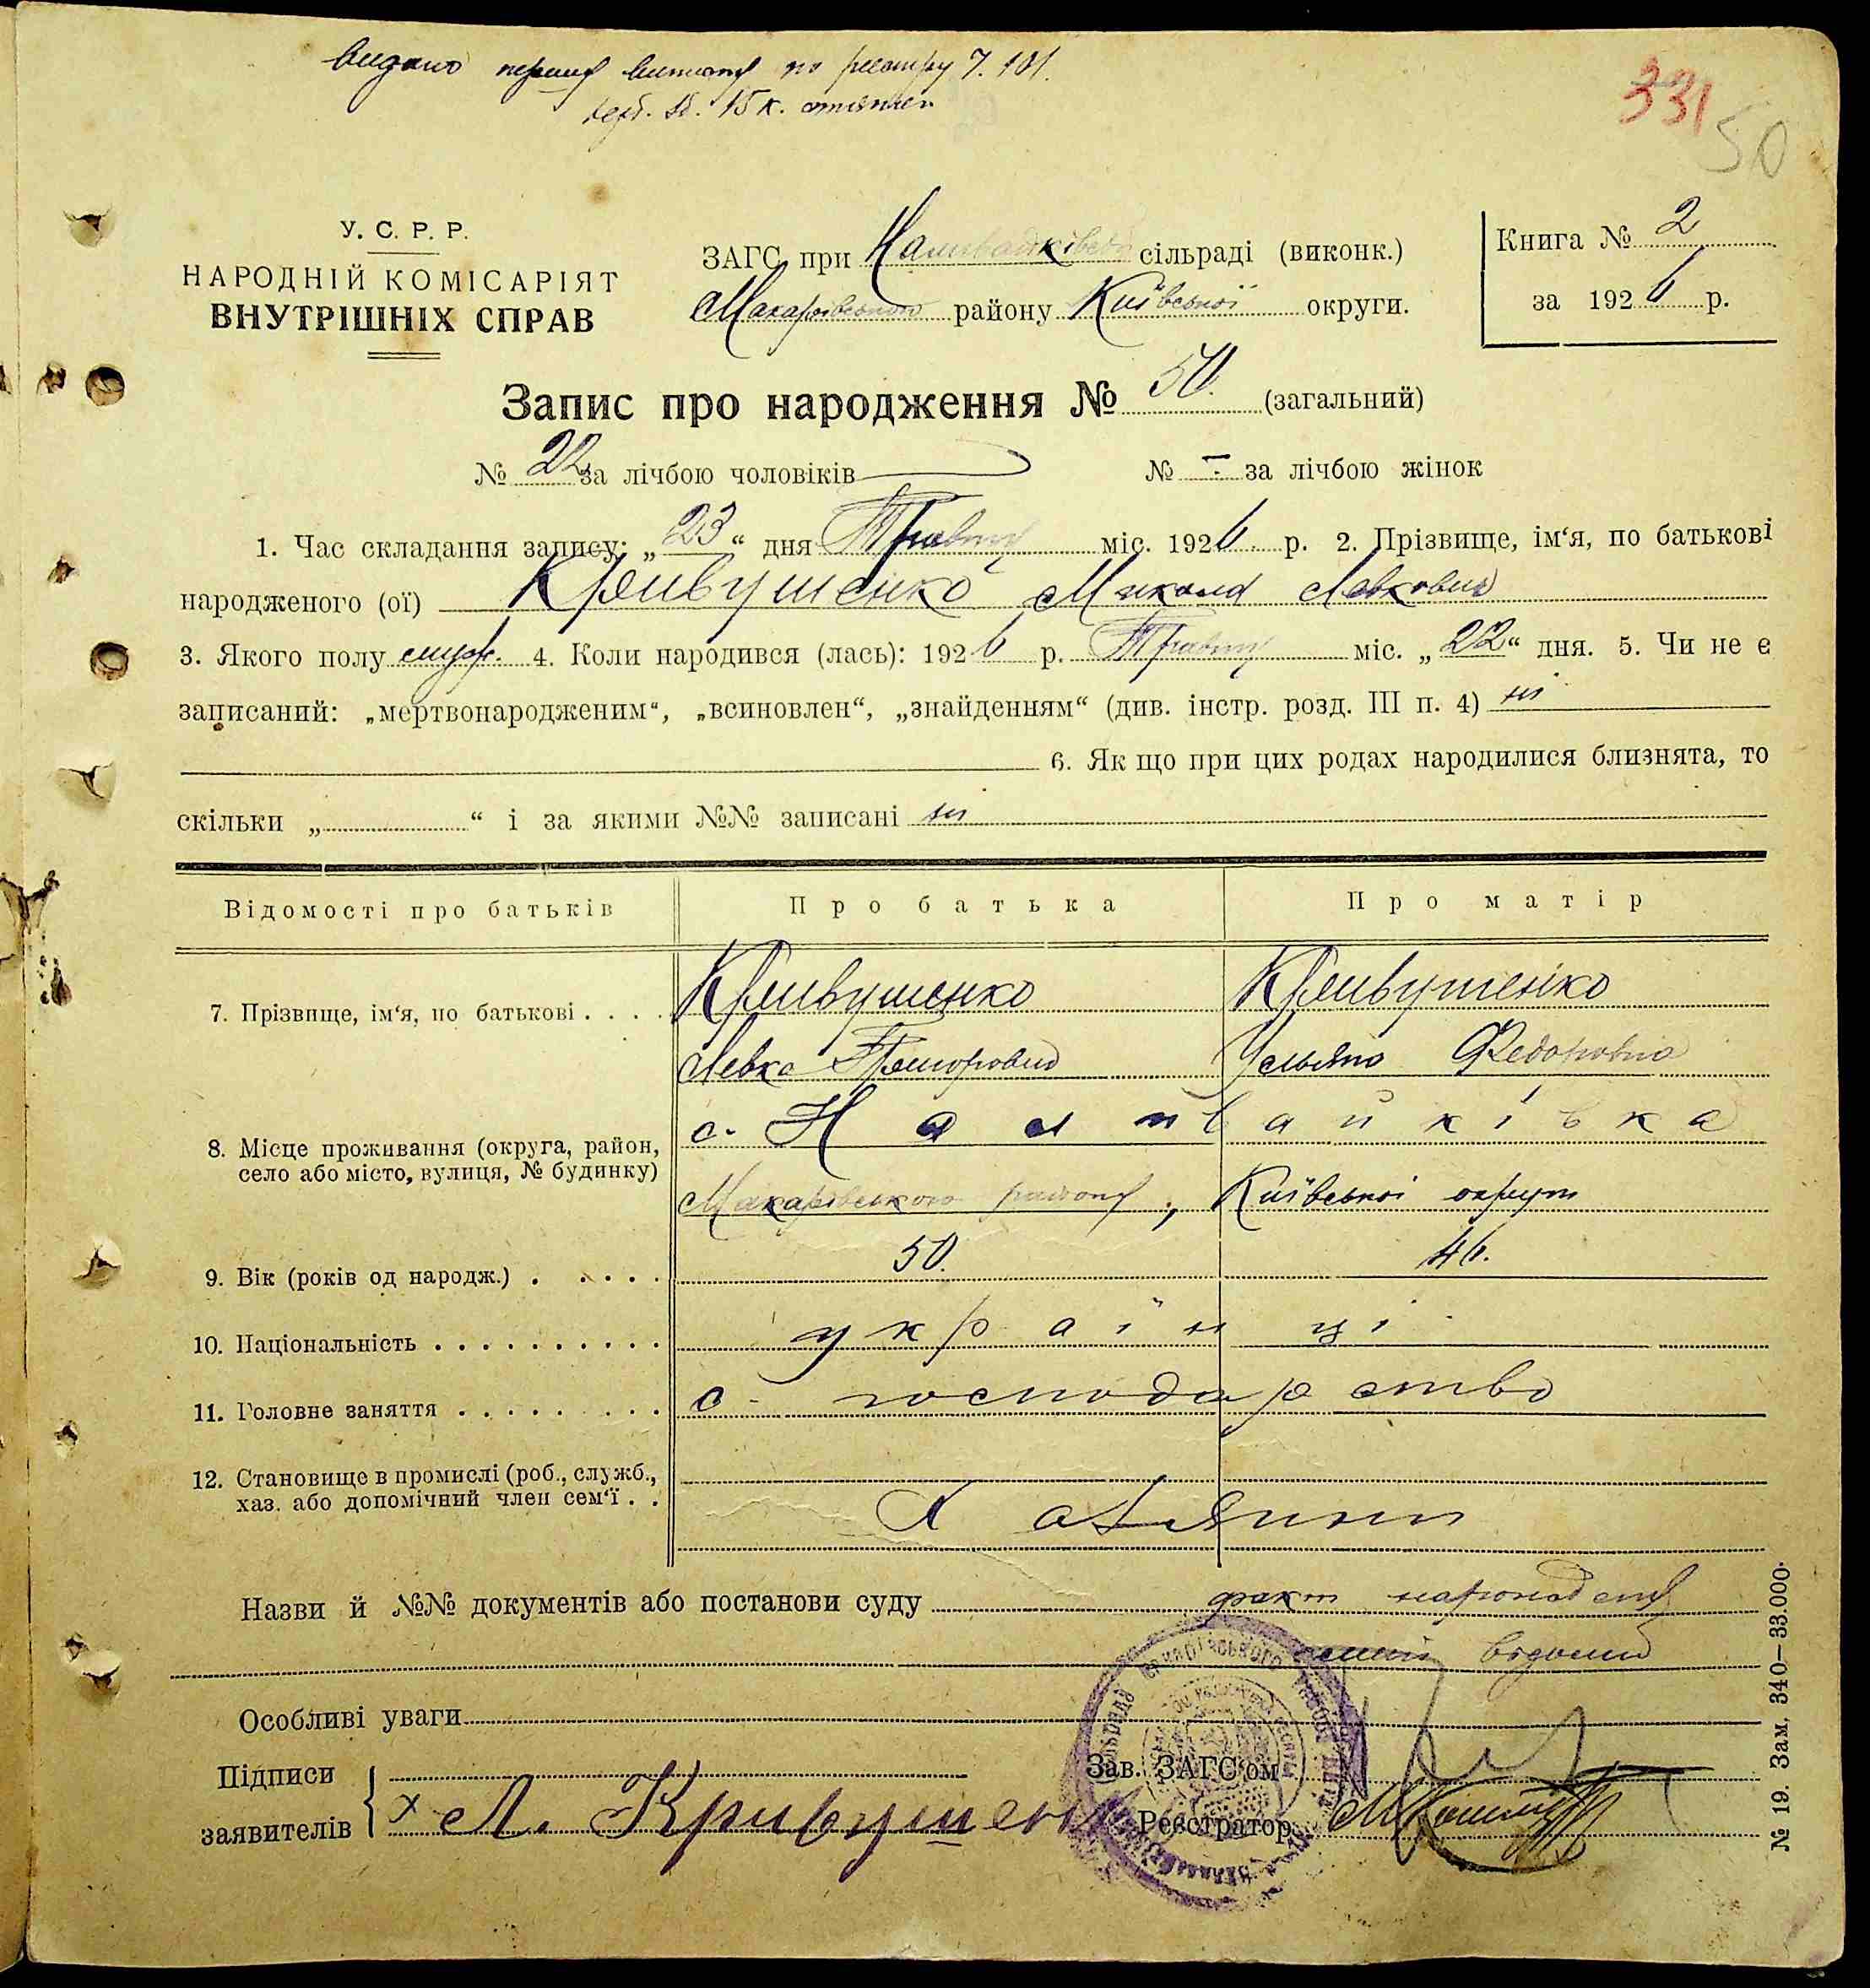 Видано першу виписку по реєстру Ч. 101.
15 к.
331 50
У. С. Р. Р.
НАРОДНІЙ КОМІСАРІЯТ
ВНУТРІШНІХ СПРАВ
ЗАГС при Наливайківській сільраді (виконк.)
Макарівського району Київської округи.
Книга № 2
за 1926 р.
Запис про народження № 50. (загальний)
№ 22 за лічбою чоловіків № - за лічбою жінок
1. Час складання запису: „23“ дня Травня міс. 1926 р. 2. Прізвище, ім‘я, по батькові
народженого (ої) Кривушенко Микола Левкович
3. Якого полу муж. 4. Коли народився (лась): 1926 р. Травня міс. „22“ дня. 5. Чи не є
записаний: „мертвонародженим“, „всиновлен“, „знайденням“ (див. інстр. розд. III п. 4) ні
6. Як що при цих родах народилися близнята, то
скільки „ “ і за якими №№ записані ні
Відомості про батьків Про батька Про матір
7. Прізвище, ім‘я, по батькові . . . . Кривушенко Кривушенко
Левко Федоровна
8. Місце проживання (округа, район, с. Наливайківка
село або місто, вулиця, № будинку)
Макарівського району, Київської округи
9. Вік (років од народж.) . . . . . 50. 46.
10. Національність . . . . . . . . . . українці
11. Головне заняття . . . . . . . . . с. господарство
12. Становище в промислі (роб., служб.,
хаз. або допомічний член сем‘ї . .
Назви й №№ документів або постанови суду факт
Особливі уваги
Підписи
Зав. ЗАГС‘ом
заявителів х Л. Кривушенко Реєстратор
№ 19. Зам. 340—33.000.